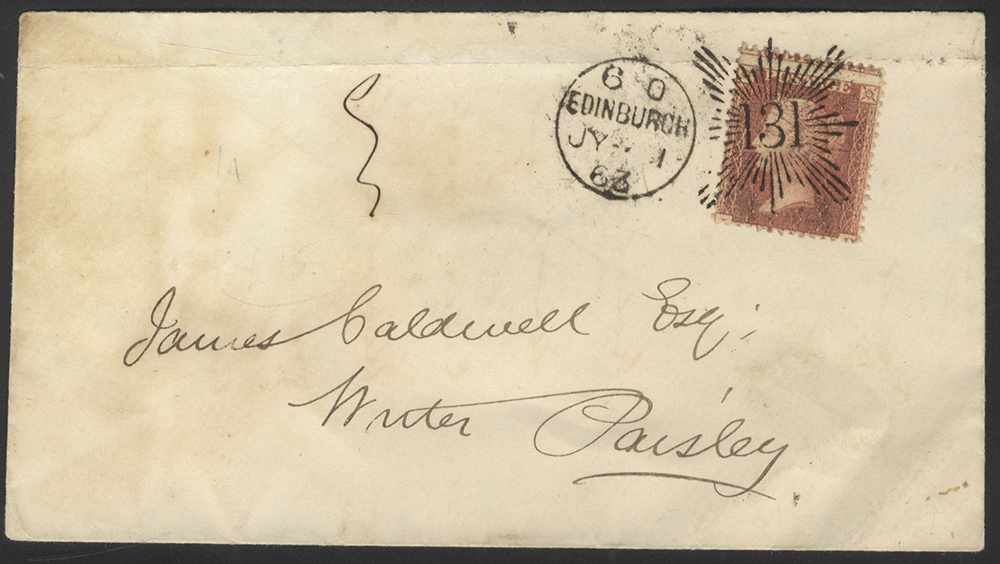 6 O
EDINBURGH
JY 1
63
131
James Caldwell Esq;
Writer Paisley